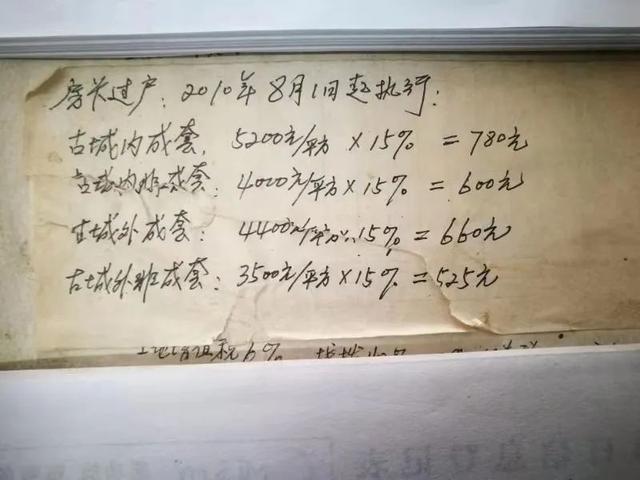 房关过户:2010年8月1日起执行:
古城内成套,5200元/平方×15%=780元
古城内非成套:4000元/平方×15%=600元
古城外成套:4400元/平方×15%=660元
古城外非成套:3500元/平方×15%=525元
6%